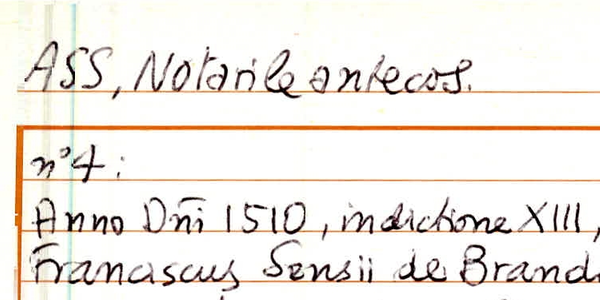 ASS, Notarile antecos.
n°4:
Anno Dñi 1510, indictione XIII,
Franciscus Sensii de Brand